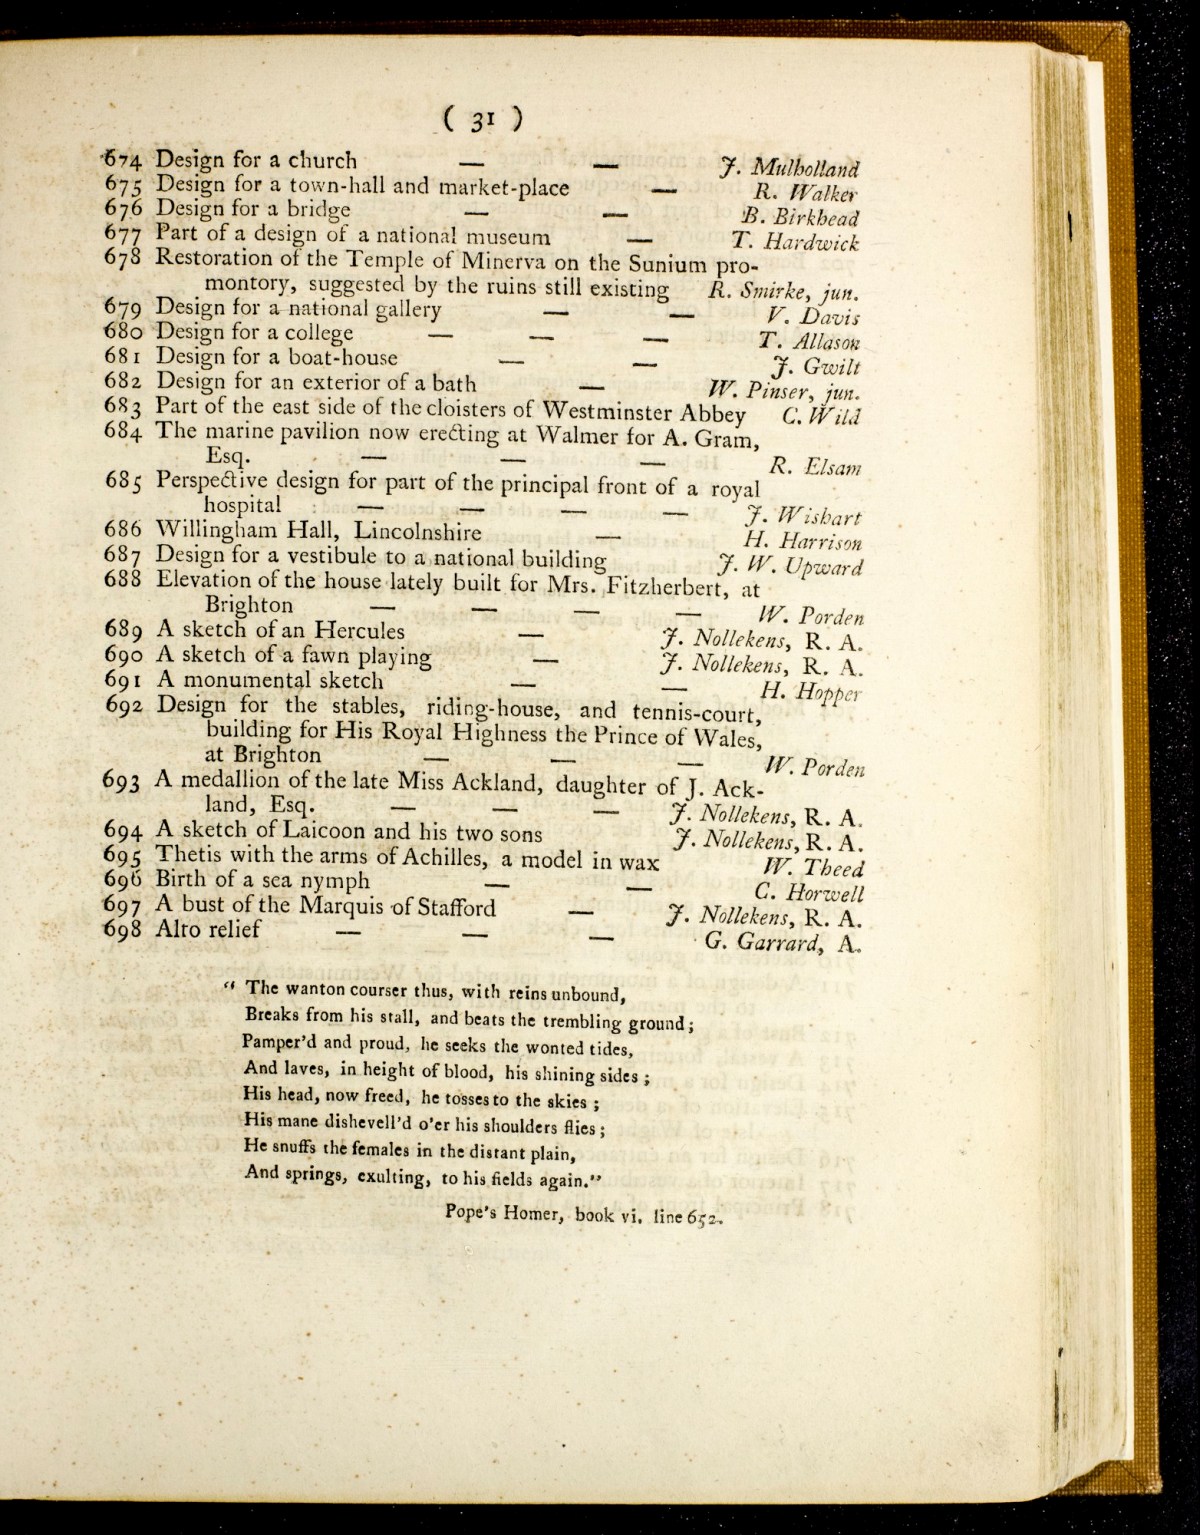 ( 31 )
674 Design for a church — — J. Mulholland
675 Design for a town-hall and market-place — R. Walker
676 Design for a bridge — — B. Birkhead
677 Part of a design of a national museum — T. Hardwick
678 Restoration of the Temple of Minerva on the Sunium pro-
montory, suggested by the ruins still existing R. Smirke, jun.
679 Design for a national gallery — — V. Davis
680 Design for a college — — — T. Allason
681 Design for a boat-house — — J. Gwilt
682 Design for an exterior of a bath — W. Pinser, jun.
683 Part of the east side of the cloisters of Westminster Abbey C. Wild
684 The marine pavilion now erecting at Walmer for A. Gram,
Esq. — — — R. Elsam
685 Perspective design for part of the principal front of a royal
hospital — — — — J. Wishart
686 Willingham Hall, Lincolnshire — H. Harrison
687 Design for a vestibule to a national building J. W. Upward
688 Elevation of the house lately built for Mrs. Fitzherbert, at
Brighton — — — — W. Porden
689 A sketch of an Hercules — J. Nollekens, R. A.
690 A sketch of a fawn playing — J. Nollekens, R. A.
691 A monumental sketch — — H. Hopper
692 Design for the stables, riding-house, and tennis-court,
building for His Royal Highness the Prince of Wales,
at Brighton — — — W. Porden
693 A medallion of the late Miss Ackland, daughter of J. Ack-
land, Esq. — — — J. Nollekens, R. A.
694 A sketch of Laicoon and his two sons J. Nollekens, R. A.
695 Thetis with the arms of Achilles, a model in wax W. Theed
696 Birth of a sea nymph — — C. Horwell
697 A bust of the Marquis of Stafford — J. Nollekens, R. A.
698 Alto relief — — — G. Garrard, A.
“ The wanton courser thus, with reins unbound,
Breaks from his stall, and beats the trembling ground;
Pamper'd and proud, he seeks the wonted tides,
And laves, in height of blood, his shining sides ;
His head, now freed, he tosses to the skies ;
His mane dishevell'd o'er his shoulders flies ;
He snuffs the females in the distant plain,
And springs, exulting, to his fields again.”
Pope's Homer, book vi. line 652.